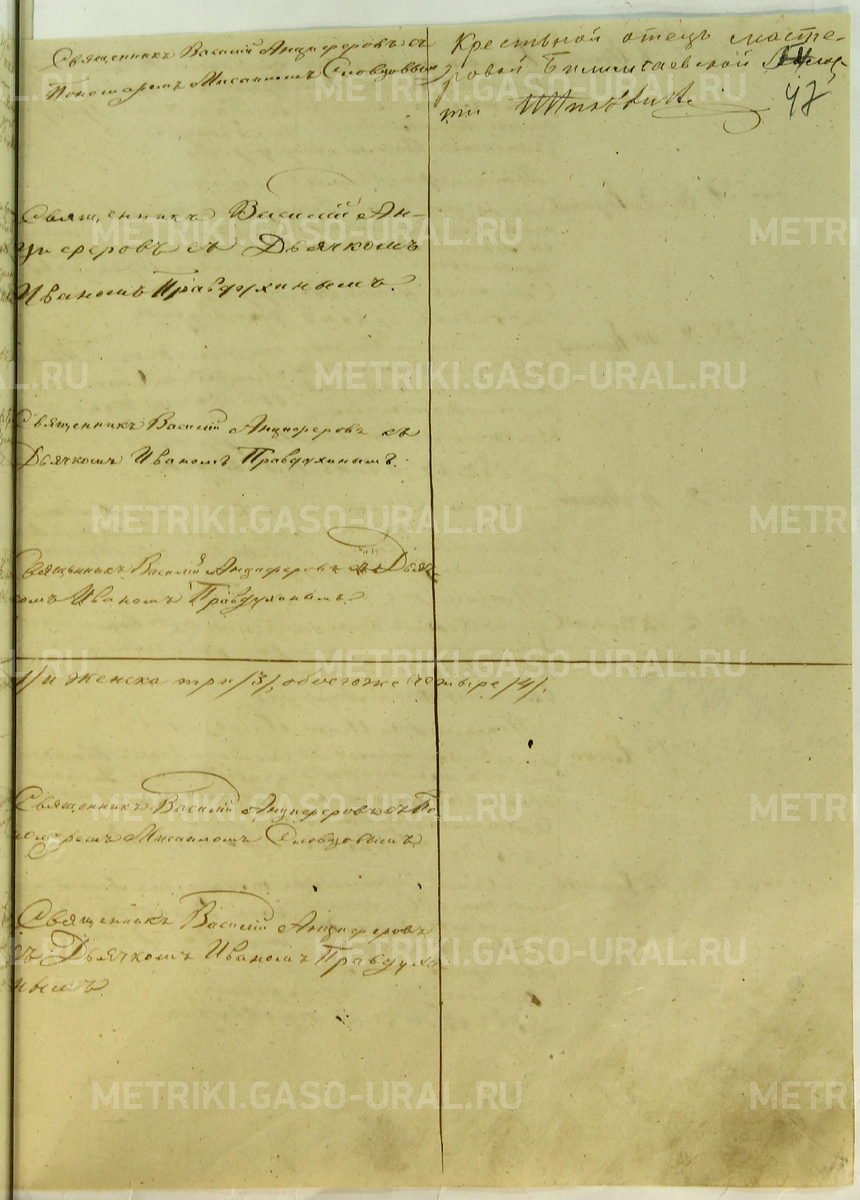 Священникъ Василій Анциферовъ съ
Пономаремъ Мисаиломъ Словцовымъ
Крестьной отецъ масте-
ровой Билимбаевской
47
Священникъ Василій Ан-
циферовъ съ Дьячкомъ
Иваномъ Правдухинымъ.
Священникъ Василій Анциферовъ съ
Дьячкомъ Иваномъ Правдухинымъ.
Священникъ Василій Анциферовъ съ Дьяч-
комъ Иваномъ Правдухинымъ.
1/ и женска три /3/, обоегоже четыре /4/.
Священникъ Василій Анциферовъ съ По
номаремъ Мисаиломъ Словцовымъ
Священникъ Василій Анциферовъ
съ Дьячкомъ Иваномъ Правдухи
нымъ.
METRIKI.GASO-URAL.RU